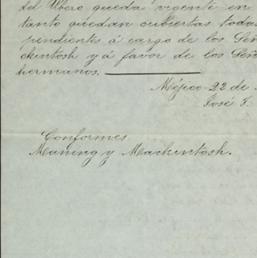 del Ubero queda vigente en
tanto quedan cubiertas todas
pendients á cargo de los Señ
ckintosh y á favor de los Señ
hermanos.
México 22 de
José F.
Conformes
Maning y Mackintosh.